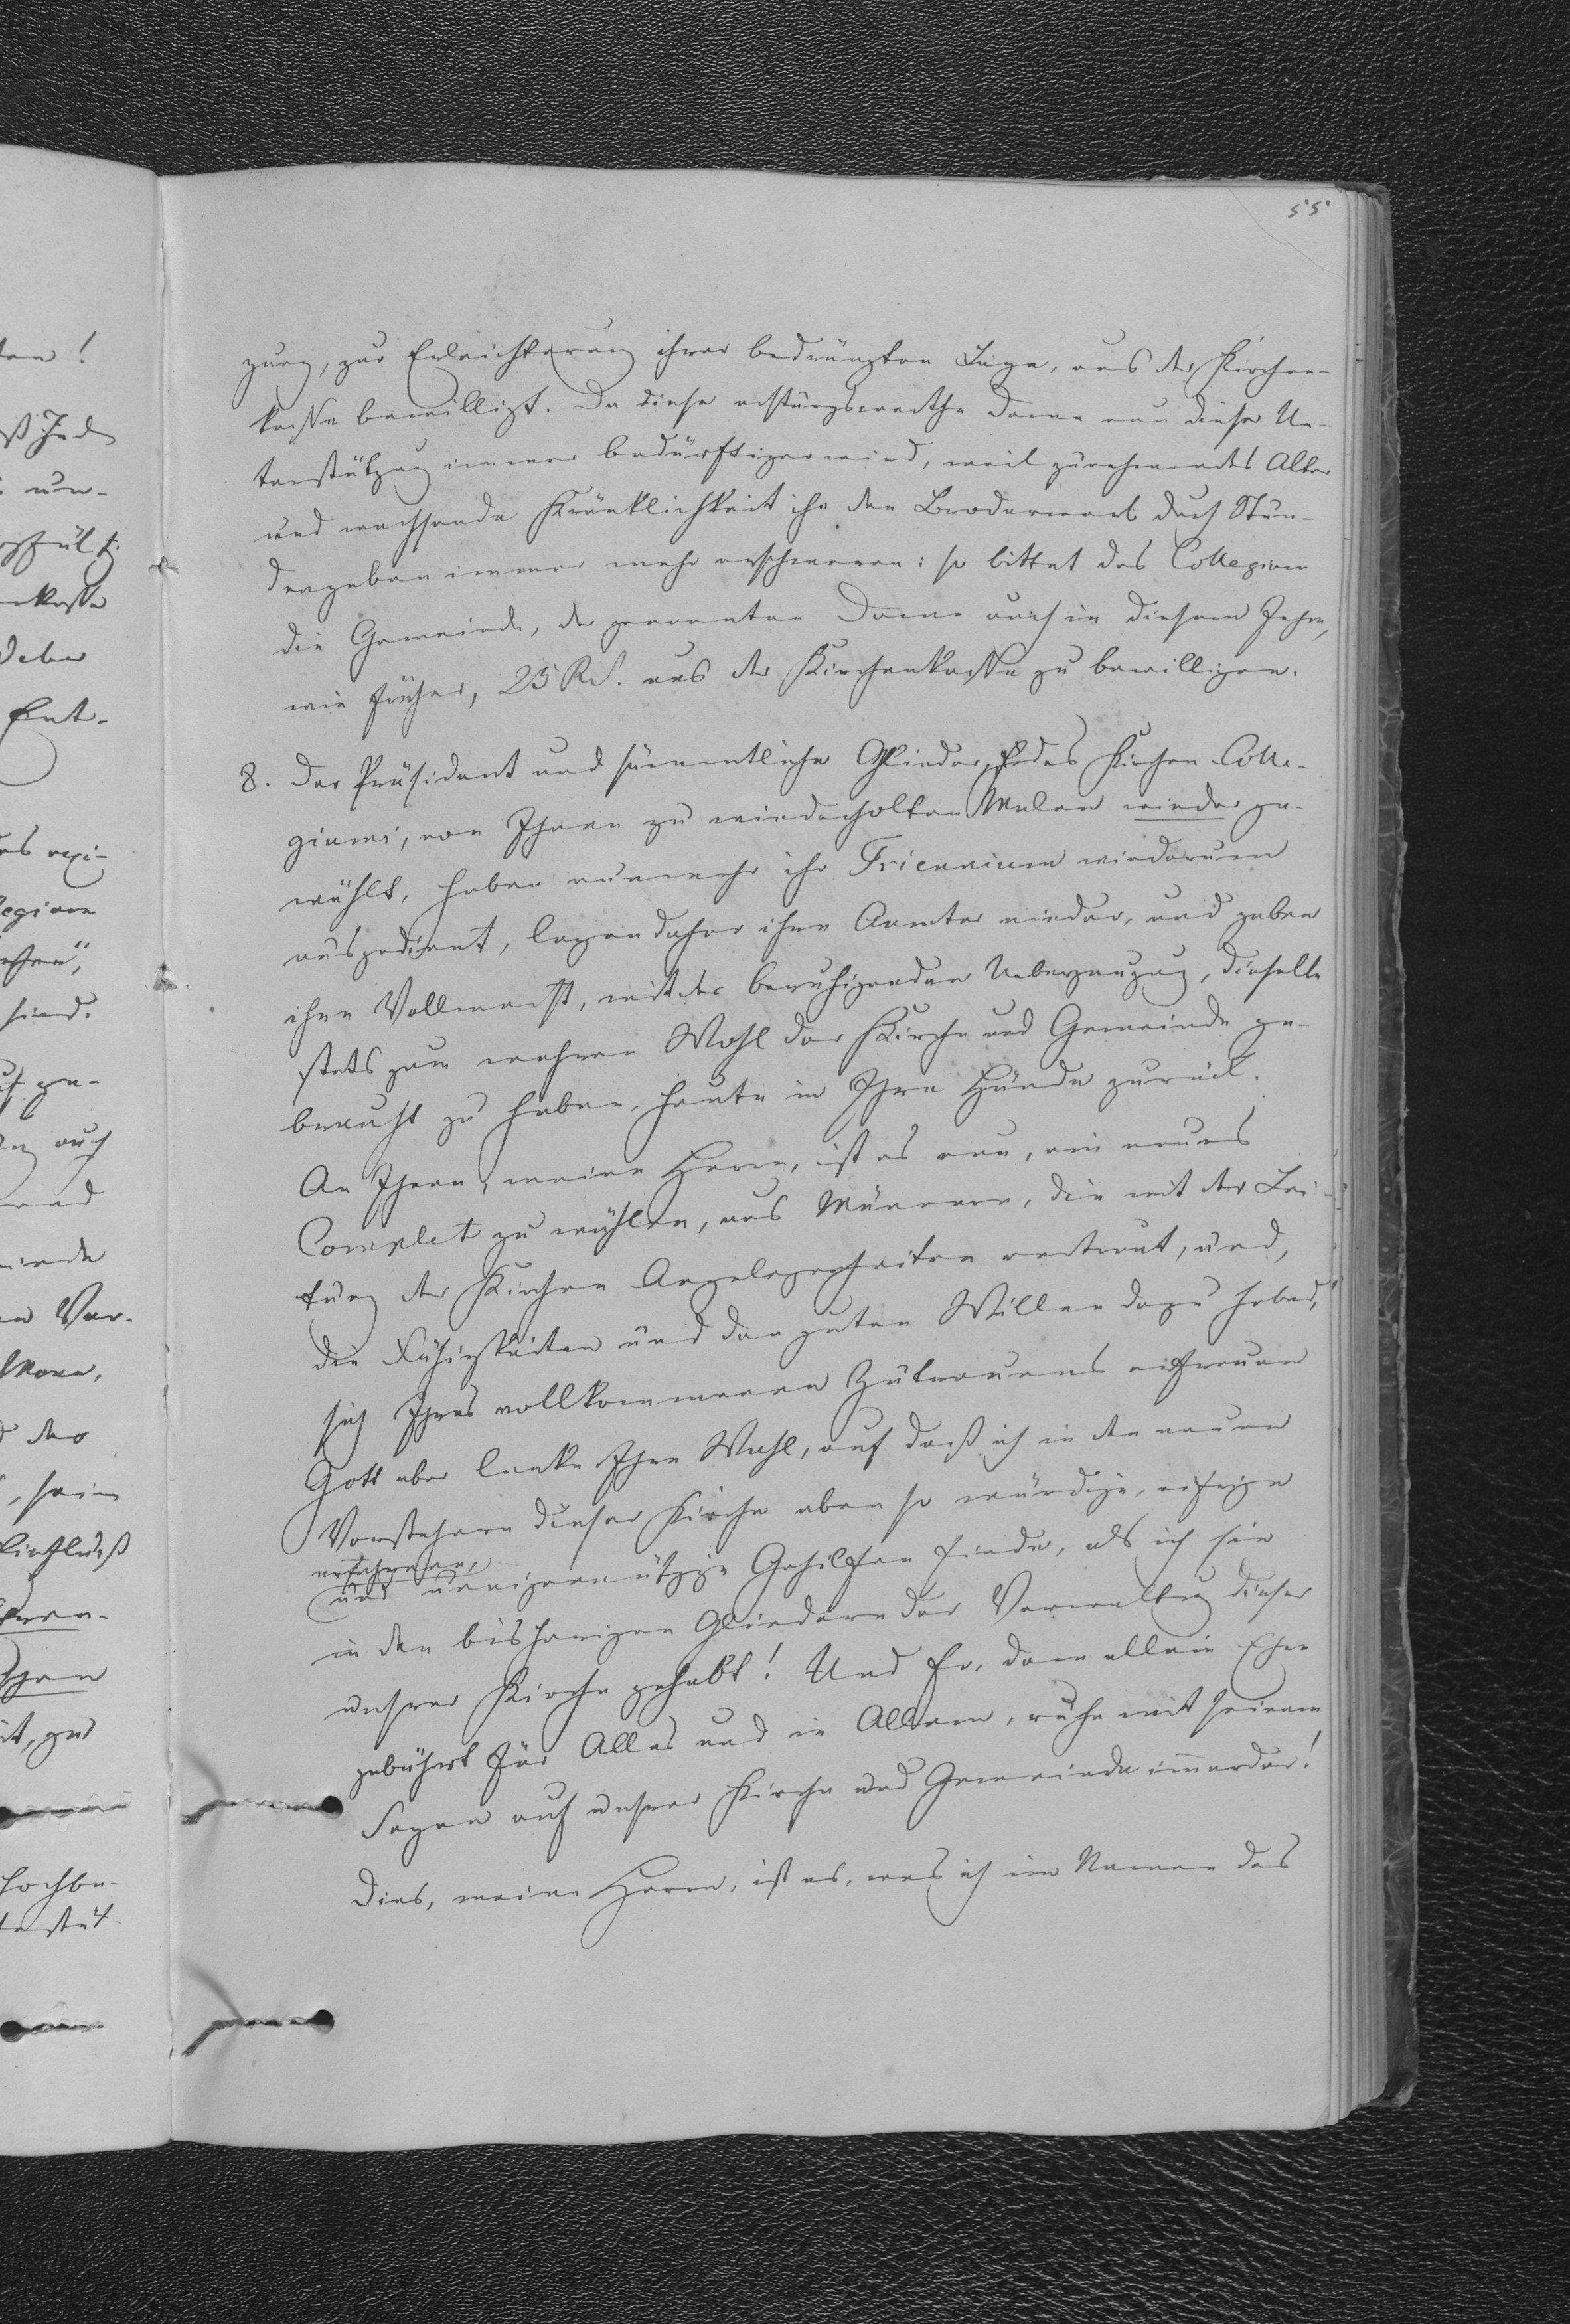 55.
zung, zur Erleichterung ihrer bedrängten Lage, aus der Kirchen-
kasse bewilligt. Da diese achtungswerthe Dame nun dieser Un-
terstützung immer bedürftiger wird, weil zunehmendes Alter
und wachsende Kränklichkeit ihr den Broderwerb durch Stun-
dengeben immer mehr erschweren: so bittet das Collegium
die Gemeinde, der genannten Dame auch in diesem Jahre,
wie früher, 25 Rbl. aus der Kirchenkasse zu bewilligen.
8. Der Präsident und sämmtliche Glieder des Kirchen-Colle-
giums, von Ihnen zu wiederholten Malen wieder ge-
wählt, haben nunmehr ihr Triennium wiederum
ausgedient, legen daher ihre Aemter nieder, und geben
ihre Vollmacht, mit der beruhigenden Ueberzeugung, dieselbe
stets zum wahren Wohl der Kirche und Gemeinde ge-
braucht zu haben, heute in Ihre Hände zurück.
An Ihnen, meine Herrn, ist es nun, ein neues
Complet zu wählen, aus Männern, die mit der Lei-
tung der Kirchen Angelegenheiten vertraut, und,
die Fähigkeiten und den guten Willen dazu habend,
sich Ihres vollkommenen Zutrauens erfreuen
Gott aber lenke Ihre Wahl, auf daß ich in den neuen
Vorstehern dieser Kirche eben so würdige, eifrige
erfahrene,
und uneigennützige Gehilfen finde, als ich sie
in den bisherigen Gliedern der Verwaltung dieser
unserer Kirche gehabt! Und Er, dem allein Ehre
gebührt für Alles und in Allem, ruhe mit seinem
Segen auf unserer Kirche und Gemeinde immerdar!
Dies, meine Herrn, ist es, was ich im Namen des